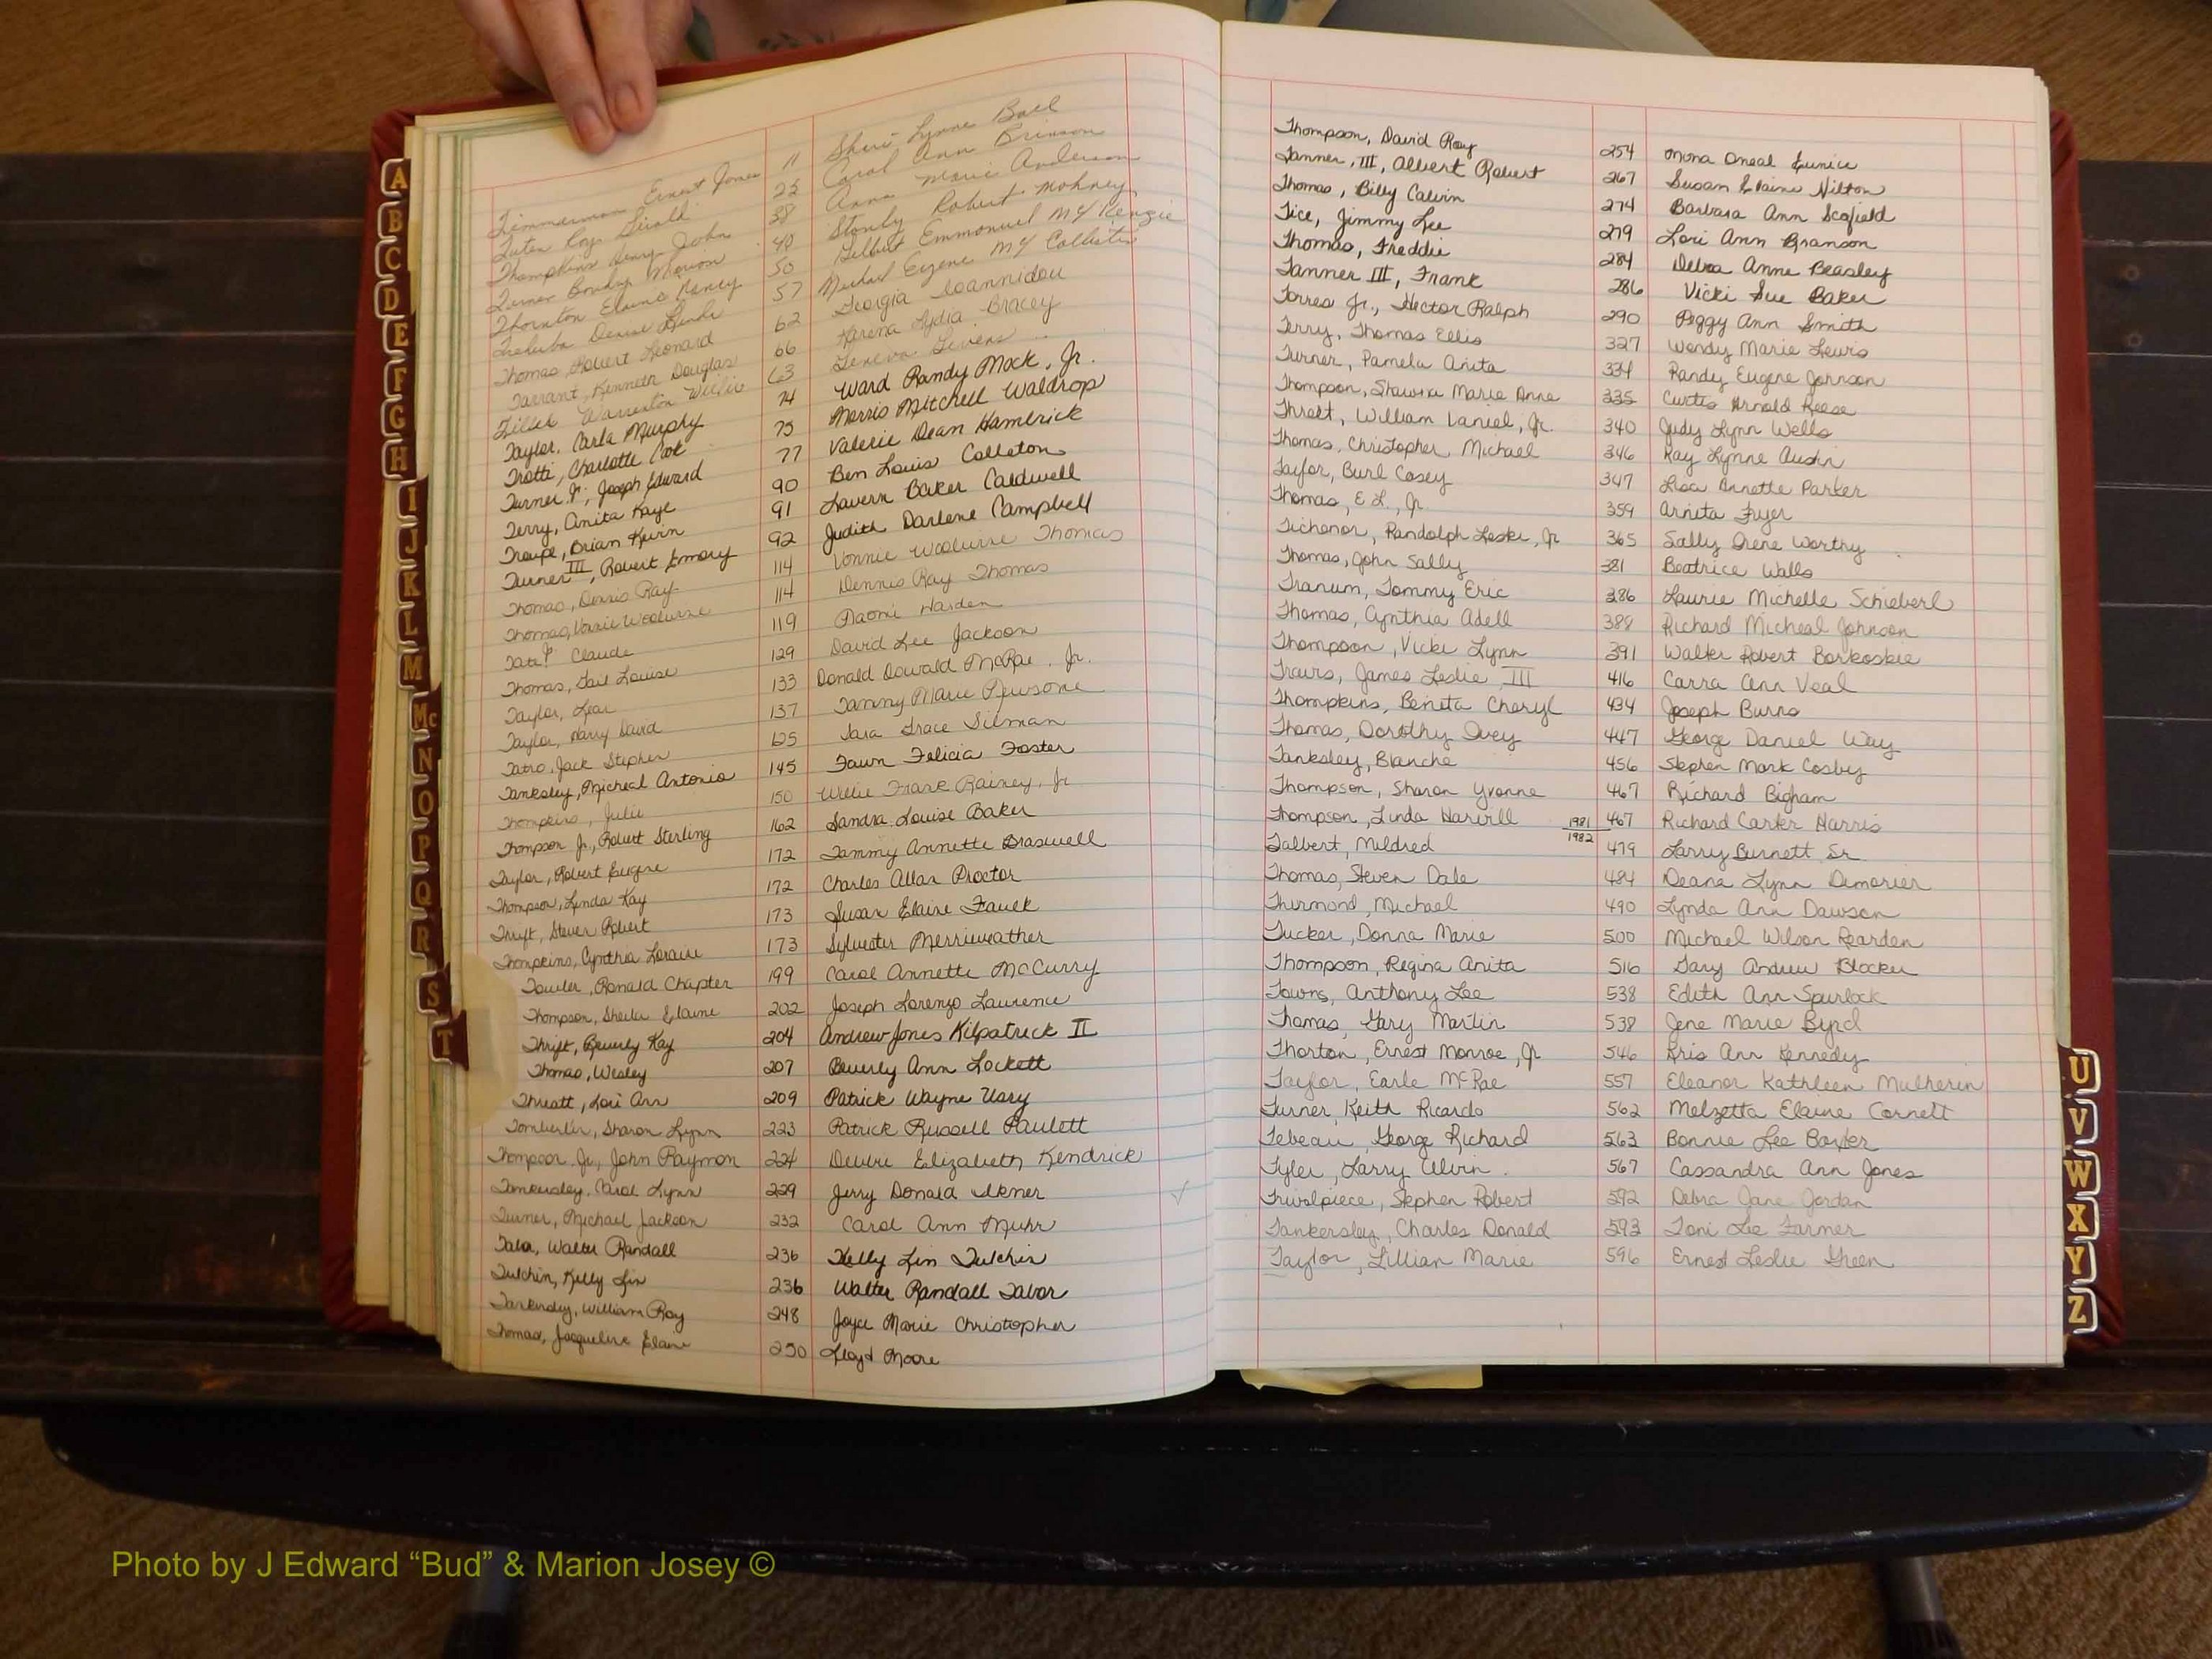 A
B
C
D
E
F
G
H
I
J
K
L
M
Mc
N
O
P
Q
R
S
T
Timmerman Ernest Jones 11 Sheri Lynne Ball
25 Carol Ann Brinson
Thompkins Henry John 38 Anna Marie Anderson
Turner Marion 49 Stonly Robert Mohney
Thornton Elaine Nancy 50 Gilbert Emmanuel McKenzie
Denise 57 Michael Eugene McCollister
Thomas Robert Leonard 62 Georgia Ioannidou
Tarrant, Kenneth Douglas 66 Lydia Bracey
Warrenton Willie 63 Geneva Givens
Taylor, Carla Murphy 74 Ward Randy Mock, Jr.
Trotti, Charlotte Cook 75 Morris Mitchell Waldrop
Turner Jr., Joseph Edward 77 Valerie Dean Hambrick
Terry, Anita Kaye 90 Ben Louis Collaton
Troupe, Brian Kevin 91 Lavern Baker Caldwell
Turner III, Robert Emory 92 Judith Darlene Campbell
Thomas, Dennis Ray 114 Vonnie Woolurne Thomas
Thomas, Vonnie Woolurne 114 Dennis Ray Thomas
Tate, Claude 119 Naomi Harden
Thomas, Gail Louise 129 David Lee Jackson
Taylor, Lear 133 Donald Oswald McRae, Jr.
Taylor, Harry David 137 Tammy Marie Newsome
Tatro, Jack Stephen 125 Tara Grace Silman
Tanksley, Micheal Antonio 145 Fawn Felicia Foster
Thompkins, Julie 150 Willie Frank Rainey, Jr
Thompson Jr., Robert Sterling 162 Sandra Louise Baker
Taylor, Robert Eugene 172 Tammy Annette Braswell
Thompson, Lynda Kay 172 Charles Allan Proctor
Thrift, Steven Robert 173 Susan Elaine Fauek
Thompkins, Cynthia Loraine 173 Sylvester Merrieweather
Towler, Ronald Chapter 199 Carol Annette McCurry
Thompson, Sheila Elaine 202 Joseph Lorenzo Laurence
Thrift, Beverly Kay 204 Andrew Jones Kilpatrick II
Thomas, Wesley 207 Beverly Ann Lockett
Threatt, Lori Ann 209 Patrick Wayne Usry
Tomberlin, Sharon Lynn 223 Patrick Russell Paulett
Thompson Jr, John Raymon 224 Debbie Elizabeth Kendrick
Tankersley, Carol Lynn 229 Jerry Donald Ikner
Turner, Michael Jackson 232 Carol Ann Muhr
Tabor, Walter Randall 236 Kelly Lin Tutchin
Tutchin, Kelly Lin 236 Walter Randall Tabor
Tankersley, William Roy 248 Joyce Marie Christopher
Thomas, Jacqueline Elaine 250 Lloyd Moore
Thompson, David Roy 254 Mona Oneal Eunice
Tanner, III, Albert Robert 267 Susan Elaine Hilton
Thomas, Billy Calvin 274 Barbara Ann Scofield
Tice, Jimmy Lee 279 Lori Ann Branson
Thomas, Freddie 284 Debra Anne Beasley
Tanner III, Frank 286 Vicki Sue Baker
Torres Jr., Hector Ralph 290 Peggy Ann Smith
Terry, Thomas Ellis 327 Wendy Marie Lewis
Turner, Pamela Anita 334 Randy Eugene Johnson
Thompson, Shawna Marie Anne 335 Curtis Arnold Reese
Threlt, William Laniel, Jr. 340 Judy Lynn Wells
Thomas, Christopher Michael 346 Ray Lynne Austin
Taylor, Burl Casey 347 Lisa Annette Parker
Thomas, E.L., Jr. 359 Arnita Fryer
Tichenor, Randolph Leske, Jr 365 Sally Irene Worthy
Thomas, John Sally 381 Beatrice Walls
Tranum, Tommy Eric 386 Laurie Michelle Schieberl
Thomas, Cynthia Adell 388 Richard Micheal Johnson
Thompson, Vicki Lynn 391 Walter Robert Borkoskie
Travis, James Leslie III 416 Carra Ann Veal
Thompkins, Benita Cheryl 434 Joseph Burns
Thomas, Dorothy Ivey 447 George Daniel Way
Tanksley, Blanche 456 Stephen Mark Cosby
Thompson, Sharon Yvonne 467 Richard Bigham
Thompson, Linda Harvill 1981 467 Richard Carter Harris
Talbert, Mildred 1982 479 Larry Burnett Sr
Thomas, Steven Dale 484 Deana Lynn Demorier
Thurmond, Michael 490 Lynda Ann Dawson
Tucker, Donna Marie 500 Michael Wilson Rearden
Thompson, Regina Anita 516 Gary Andrew Blocker
Towns, Anthony Lee 538 Edith Ann Spurlock
Thomas, Gary Martin 538 Jene Marie Byrd
Thorton, Ernest Monroe, Jr 546 Kris Ann Kennedy
Taylor, Earle McRae 557 Eleanor Kathleen Mulherin
Turner, Keith Ricardo 562 Melzetta Elaine Cornett
Tebeau, George Richard 563 Bonnie Lee Baxter
Tyler, Larry Alvin 567 Cassandra Ann Jones
Twolpiece, Stephen Robert 592 Debra Jane Jordan
Tankersley, Charles Donald 593 Toni Lee Farmer
Taylor, Lillian Marie 596 Ernest Leslie Green
U
V
W
X
Y
Z
Photo by J Edward “Bud” & Marion Josey ©